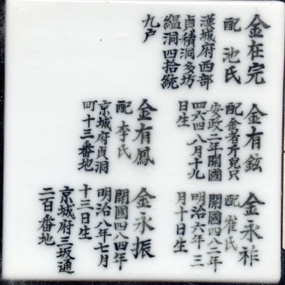 金在完
配 池氏
漢城府西部
洞四拾統
九戶
金有鉉
安政二年開國
四六四八月十九
日生
金有鳳
配 李氏
京城府貞洞
町十三番地
金永祚
配 崔氏
開國四八二年
明治六年三
月十日生
金永振
開國四八四年
明治八年七月
十三日生
京城府三坂通
二百番地